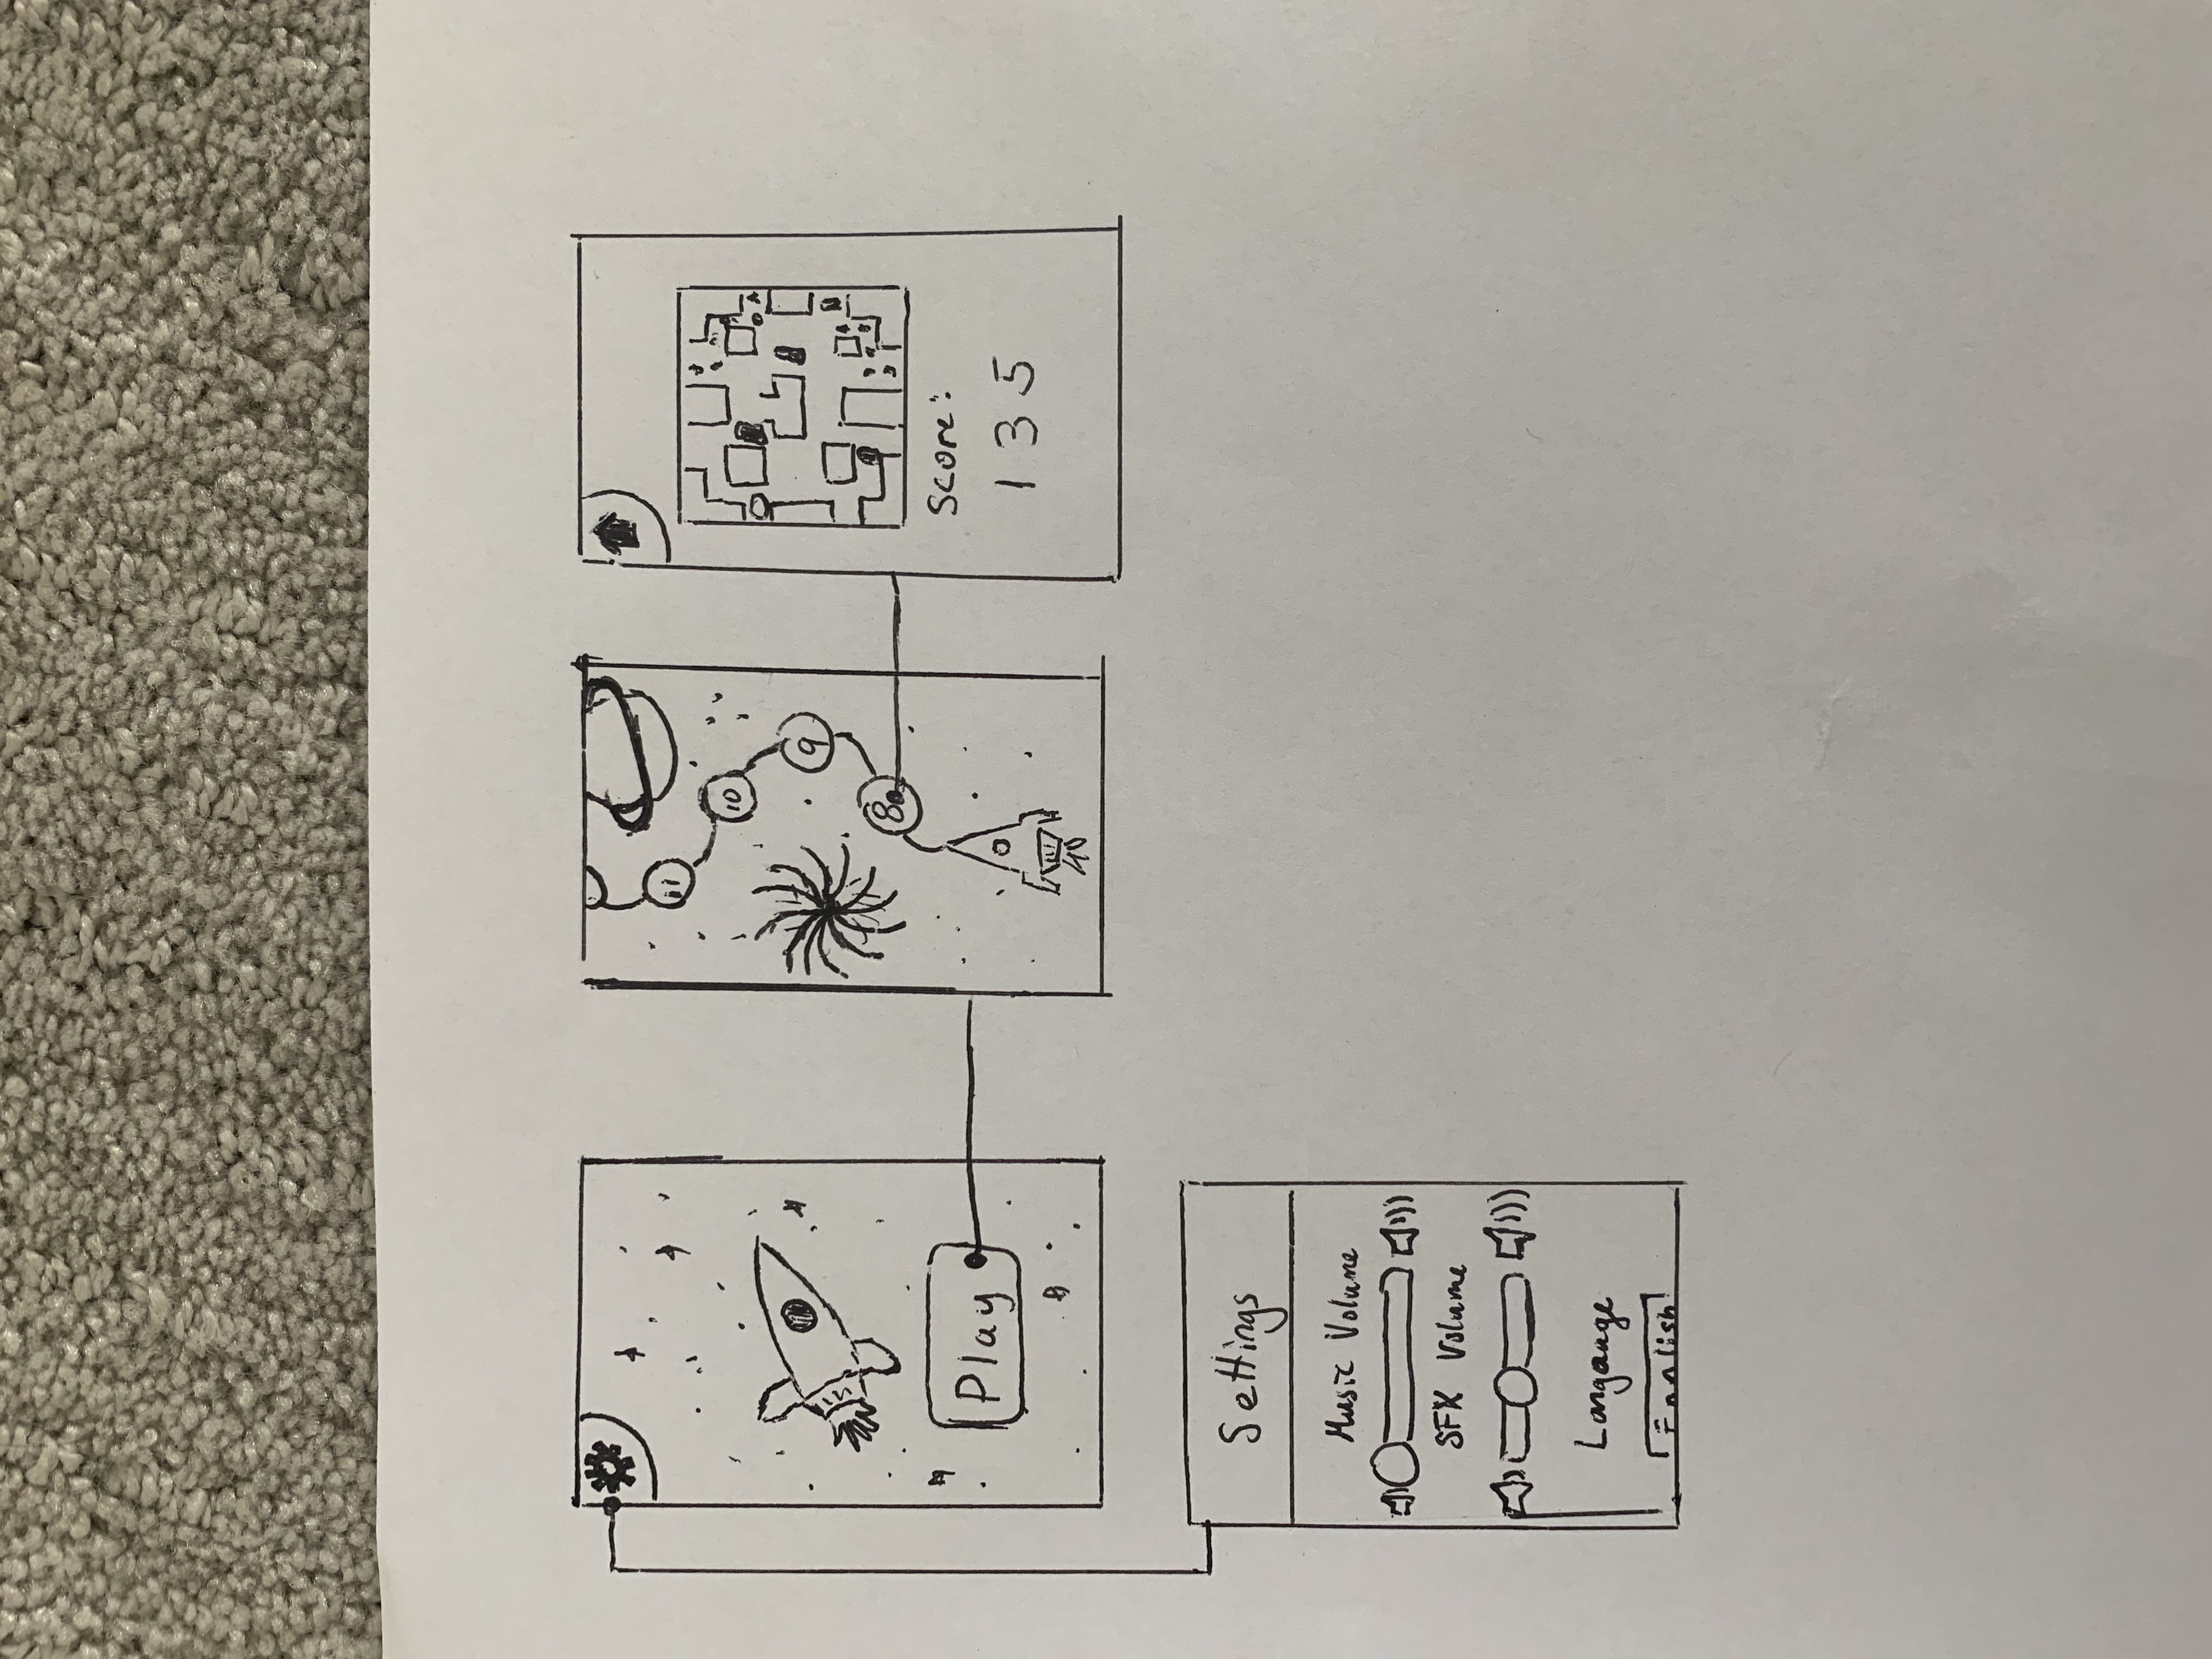 Play
11
10
9
8
Score:
135
Settings
Music Volume
SFX Volume
Langauge
English